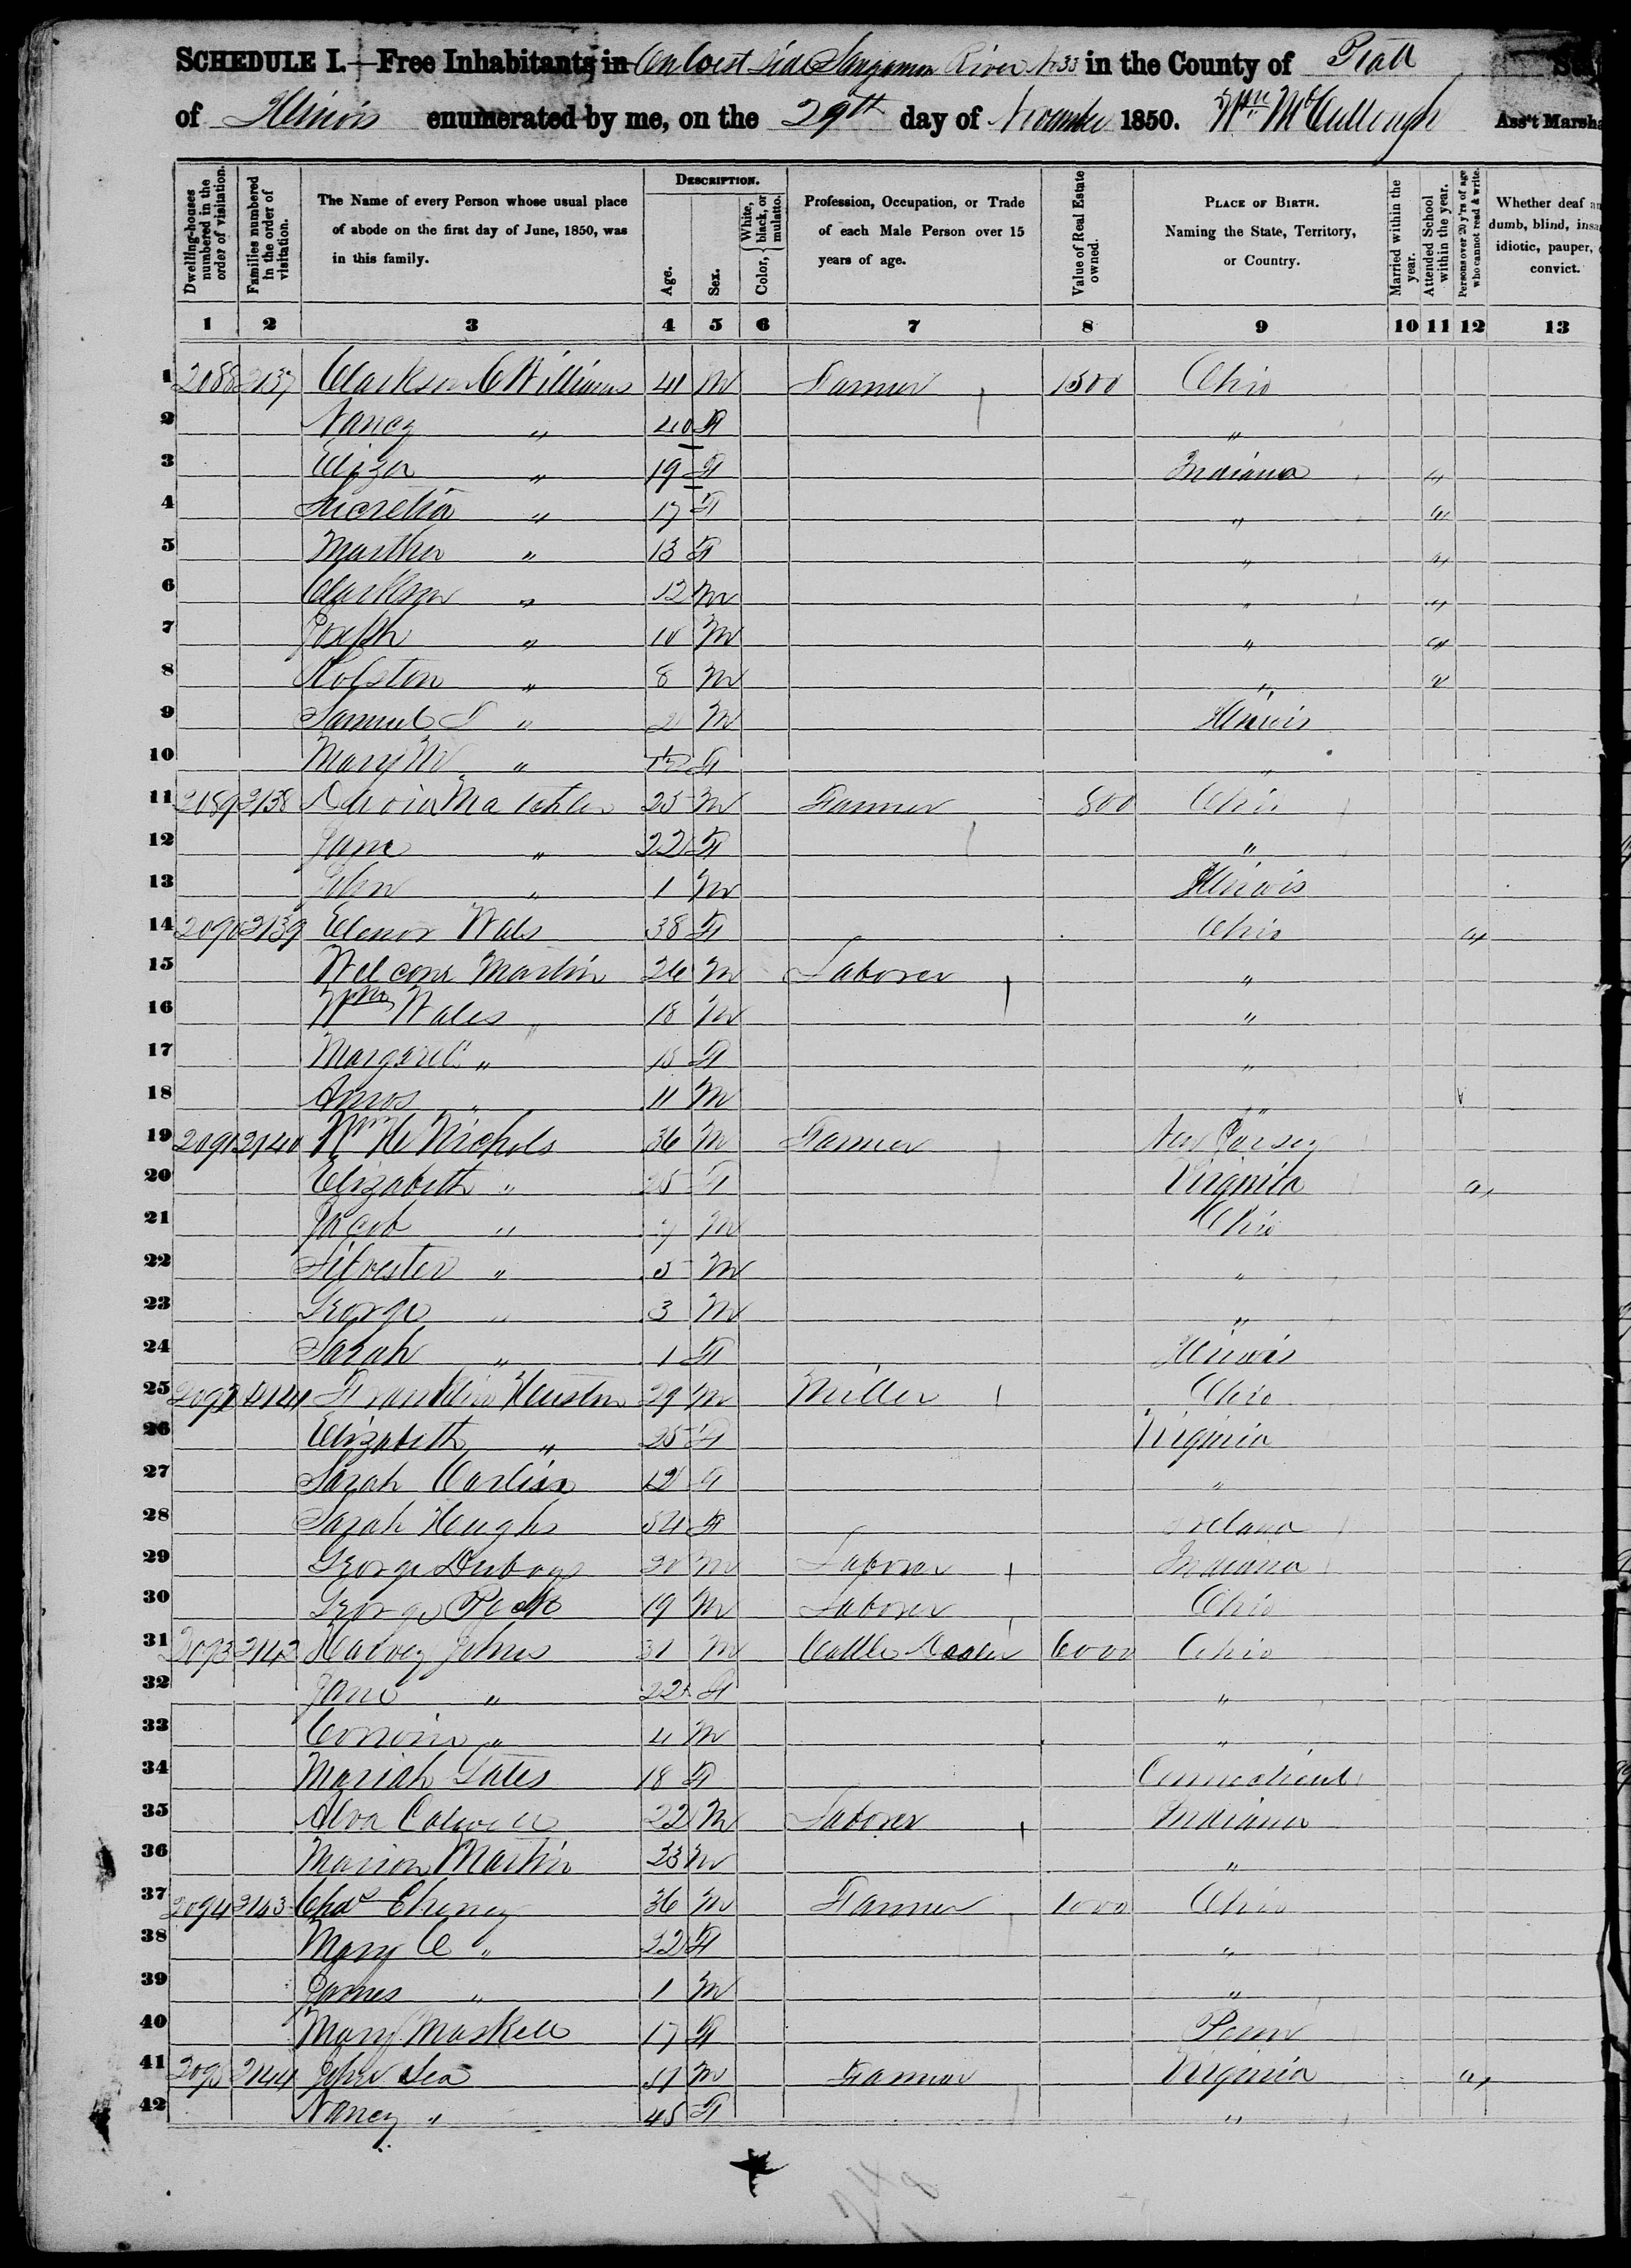 SCHEDULE I.—Free Inhabitants in On West Side Sangamon River No 33 in the County of Piatt
of Illinois enumerated by me, on the 29th day of November 1850. Wm McCullough Ass't Marsha
Dwelling-houses numbered in the order of visitation.
Families numbered in the order of visitation.
The Name of every Person whose usual place of abode on the first day of June, 1850, was in this family.
DESCRIPTION.
Age.
Sex.
Color, White, black, or mulatto.
Profession, Occupation, or Trade of each Male Person over 15 years of age.
Value of Real Estate owned.
PLACE OF BIRTH. Naming the State, Territory, or Country.
Married within the year.
Attended School within the year.
Persons over 20 y'rs of age who cannot read & write.
Whether deaf dumb, blind, idiotic, pauper, convict.
1 2 3 4 5 6 7 8 9 10 11 12 13
1 2088 2137 Clarkson C Williams 41 M Farmer 1500 Ohio
2 Nancy " 40 F "
3 Eliza " 19 F Indiana "
4 Lucretia " 17 F " "
5 Martha " 13 F " "
6 Clarkson " 12 M " "
7 Joseph " 10 M " "
8 Rolston " 8 M " "
9 Samuel " 2 M Illinois
10 Mary " F "
11 2089 2138 25 M Farmer 800 Ohio
12 Jane " 22 F "
13 John " 1 M Illinois
14 2090 2139 Elenor Wals 38 F Ohio "
15 Martin 26 M Laborer "
16 Wm Wales 18 M "
17 Margaret " 15 F "
18 Amos " 11 M "
19 2091 2140 Wm H Nichols 36 M Farmer New Jersey
20 Elizabeth " 25 F Virginia "
21 Jacob " 7 M Ohio
22 Silvester " 5 M "
23 George " 3 M "
24 Sarah " 1 F Illinois
25 2092 2141 Franklin Huston 29 M Miller Ohio
26 Elizabeth " 25 F Virginia
27 Sarah Carlisa 12 F "
28 Sarah Hughs 54 F Ireland
29 George Duboys 20 M Laborer Indiana
30 George 19 M Laborer Ohio
31 2093 2142 Harvey Johns 31 M Cattle Dealer 6000 Ohio
32 Jane " 22 F "
33 Corwin " 4 M "
34 Mariah Gates 18 F Connecticut
35 Alva Colwell 22 M Laborer Indiana
36 Marion Martin 23 M "
37 2094 2143 Chas Cheney 36 M Farmer 1000 Ohio
38 Mary C " 22 F "
39 James " 1 M "
40 Mary Maskell 17 F Penn
41 2095 2144 John Lea 51 M Farmer Virginia "
42 Nancy " 45 F "